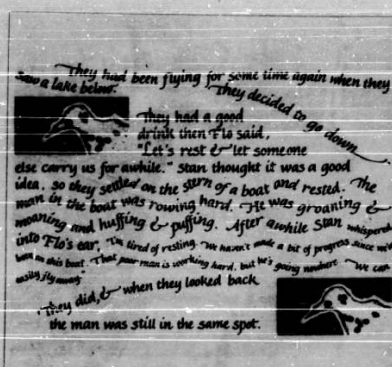 They had been flying for some time again when they
saw a lake below. They decided to go down
They had a good
drink then Flo said,
"Let's rest & let someone
else carry us for awhile." Stan thought it was a good
idea. so they settled on the stern of a boat and rested. The
man in the boat was rowing hard. He was groaning &
moaning and huffing & puffing. After awhile Stan whispered
into Flo's ear, "I'm tired of resting. We haven't made a bit of progress since we've
been on this boat. That poor man is working hard, but he's going nowhere. We can
easily fly away."
They did, & when they looked back
the man was still in the same spot.